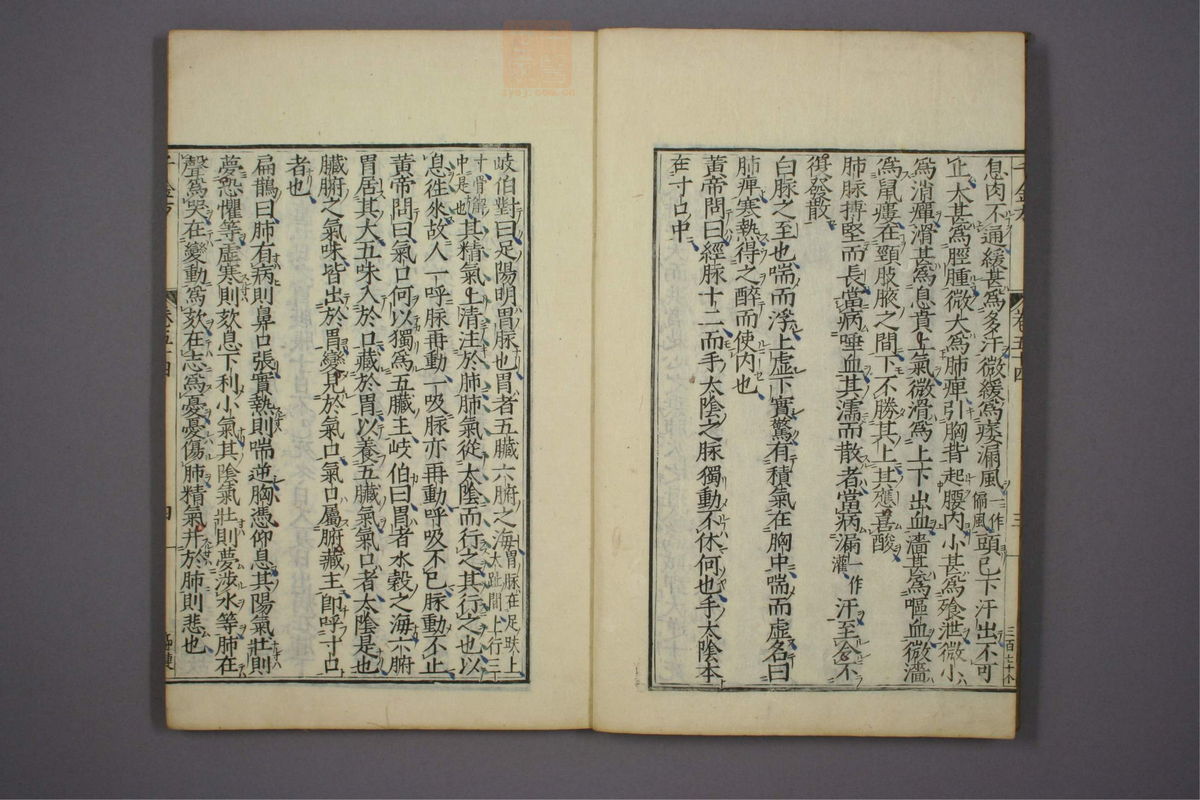 息肉不通緩甚爲多汗微緩爲痿漏風一作偏風頭已下汗出不可
止大甚爲脛腫微大爲肺痺引胸背起腰內小甚爲飱泄微小
爲消癉滑甚爲息賁上氣微滑爲上下出血濇甚爲嘔血微濇
爲鼠瘻在頸肢腋之間下不勝其上其應善酸
肺脉搏堅而長當病唾血其濡而散者當病漏一作灌汗至令不
復發散
白脉之至也喘而浮上虛下實驚有積氣在胸中喘而虛名曰
肺痺寒熱得之醉而使內也
黃帝問曰經脉十二而手太陰之脉獨動不休何也手太陰本
在寸口中
岐伯對曰足陽明胃脉也胃者五臟六腑之海胃脉在足趺上大趾間上行三
寸骨解中是也其精氣上清注於肺肺氣從太陰而行之其行之也以
息往來故人一呼脉再動一吸脉亦再動呼吸不已脉動不止
黃帝問曰氣口何以獨爲五臟主岐伯曰胃者水穀之海六腑
胃居其大五味入於口藏於胃以養五臟氣氣口者太陰是也
臟腑之氣味皆出於胃變見於氣口氣口屬腑藏主即呼寸口
者也
扁鵲曰肺有病則鼻口張實熱則喘逆胸憑仰息其陽氣壯則
夢恐懼等虛寒則欬息下利少氣其陰氣壯則夢涉水等肺在
聲爲哭在變動爲欬在志爲憂憂傷肺精氣并於肺則悲也
卷五十四
四